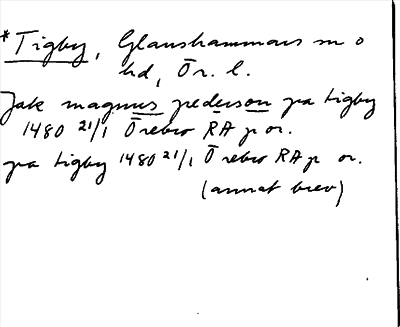 *Tigby, Glanshammars sn o
hd, Ör. l.
Jak magnus pederson pa tigby
1480 21/1 Örebro RA p or.
pa tigby 1480 21/1 Örebro RA p or.
(annat brev)